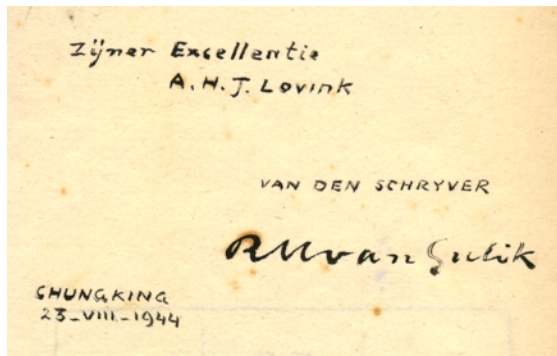 Zijner Excellentie
A.H.J. Lovink
VAN DEN SCHRYVER
RHvanGulik
CHUNGKING
23-VIII-1944